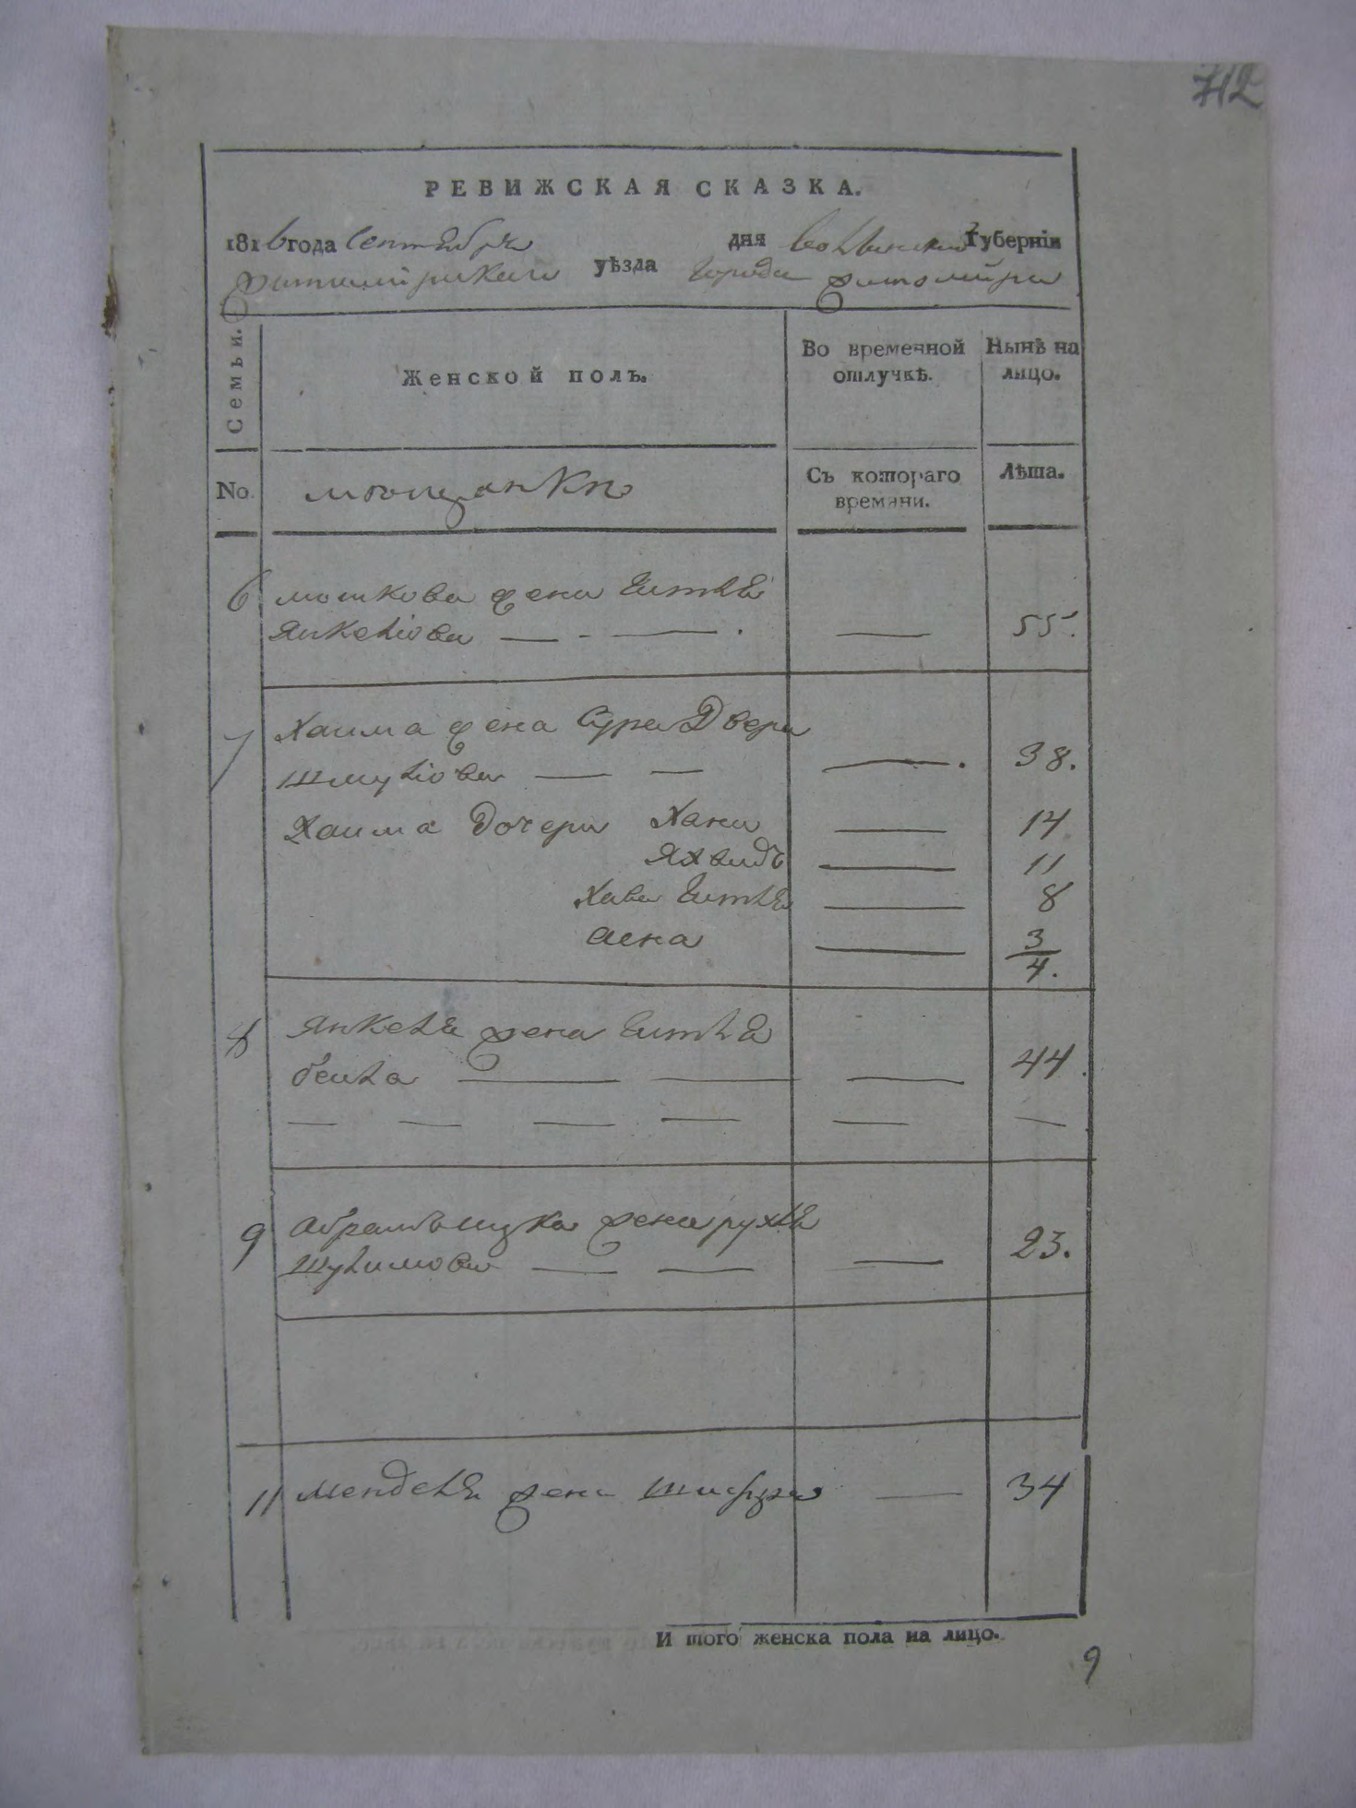 712
РЕВИЖСКАЯ СКАЗКА.
1816 года Сентября дня Волынской Губерніи
Житомирскаго уѣзда города Житомира
Семьи. Женской полъ. Во временной отлучкѣ. Нынѣ на лицо.
No. мѣщанки Съ котораго времяни. Лѣта.
6 мошкова жена Гитля
Янкеліова — - — . — 55.
7 Хаима жена Сура Двера
Шмуліова — — — . 38.
Хаима дочери Хана — 14
Яхвидъ — 11
Хава Гитля — 8
Асна — 3/4.
8 Янкеля жена Гитля
бейла — — — 44.
— — — — — —
9 Абрамъ ицка жена рухля
Шулимова — — — 23.
11 Менделя жена Шифра — 34
И того женска пола на лицо.
9